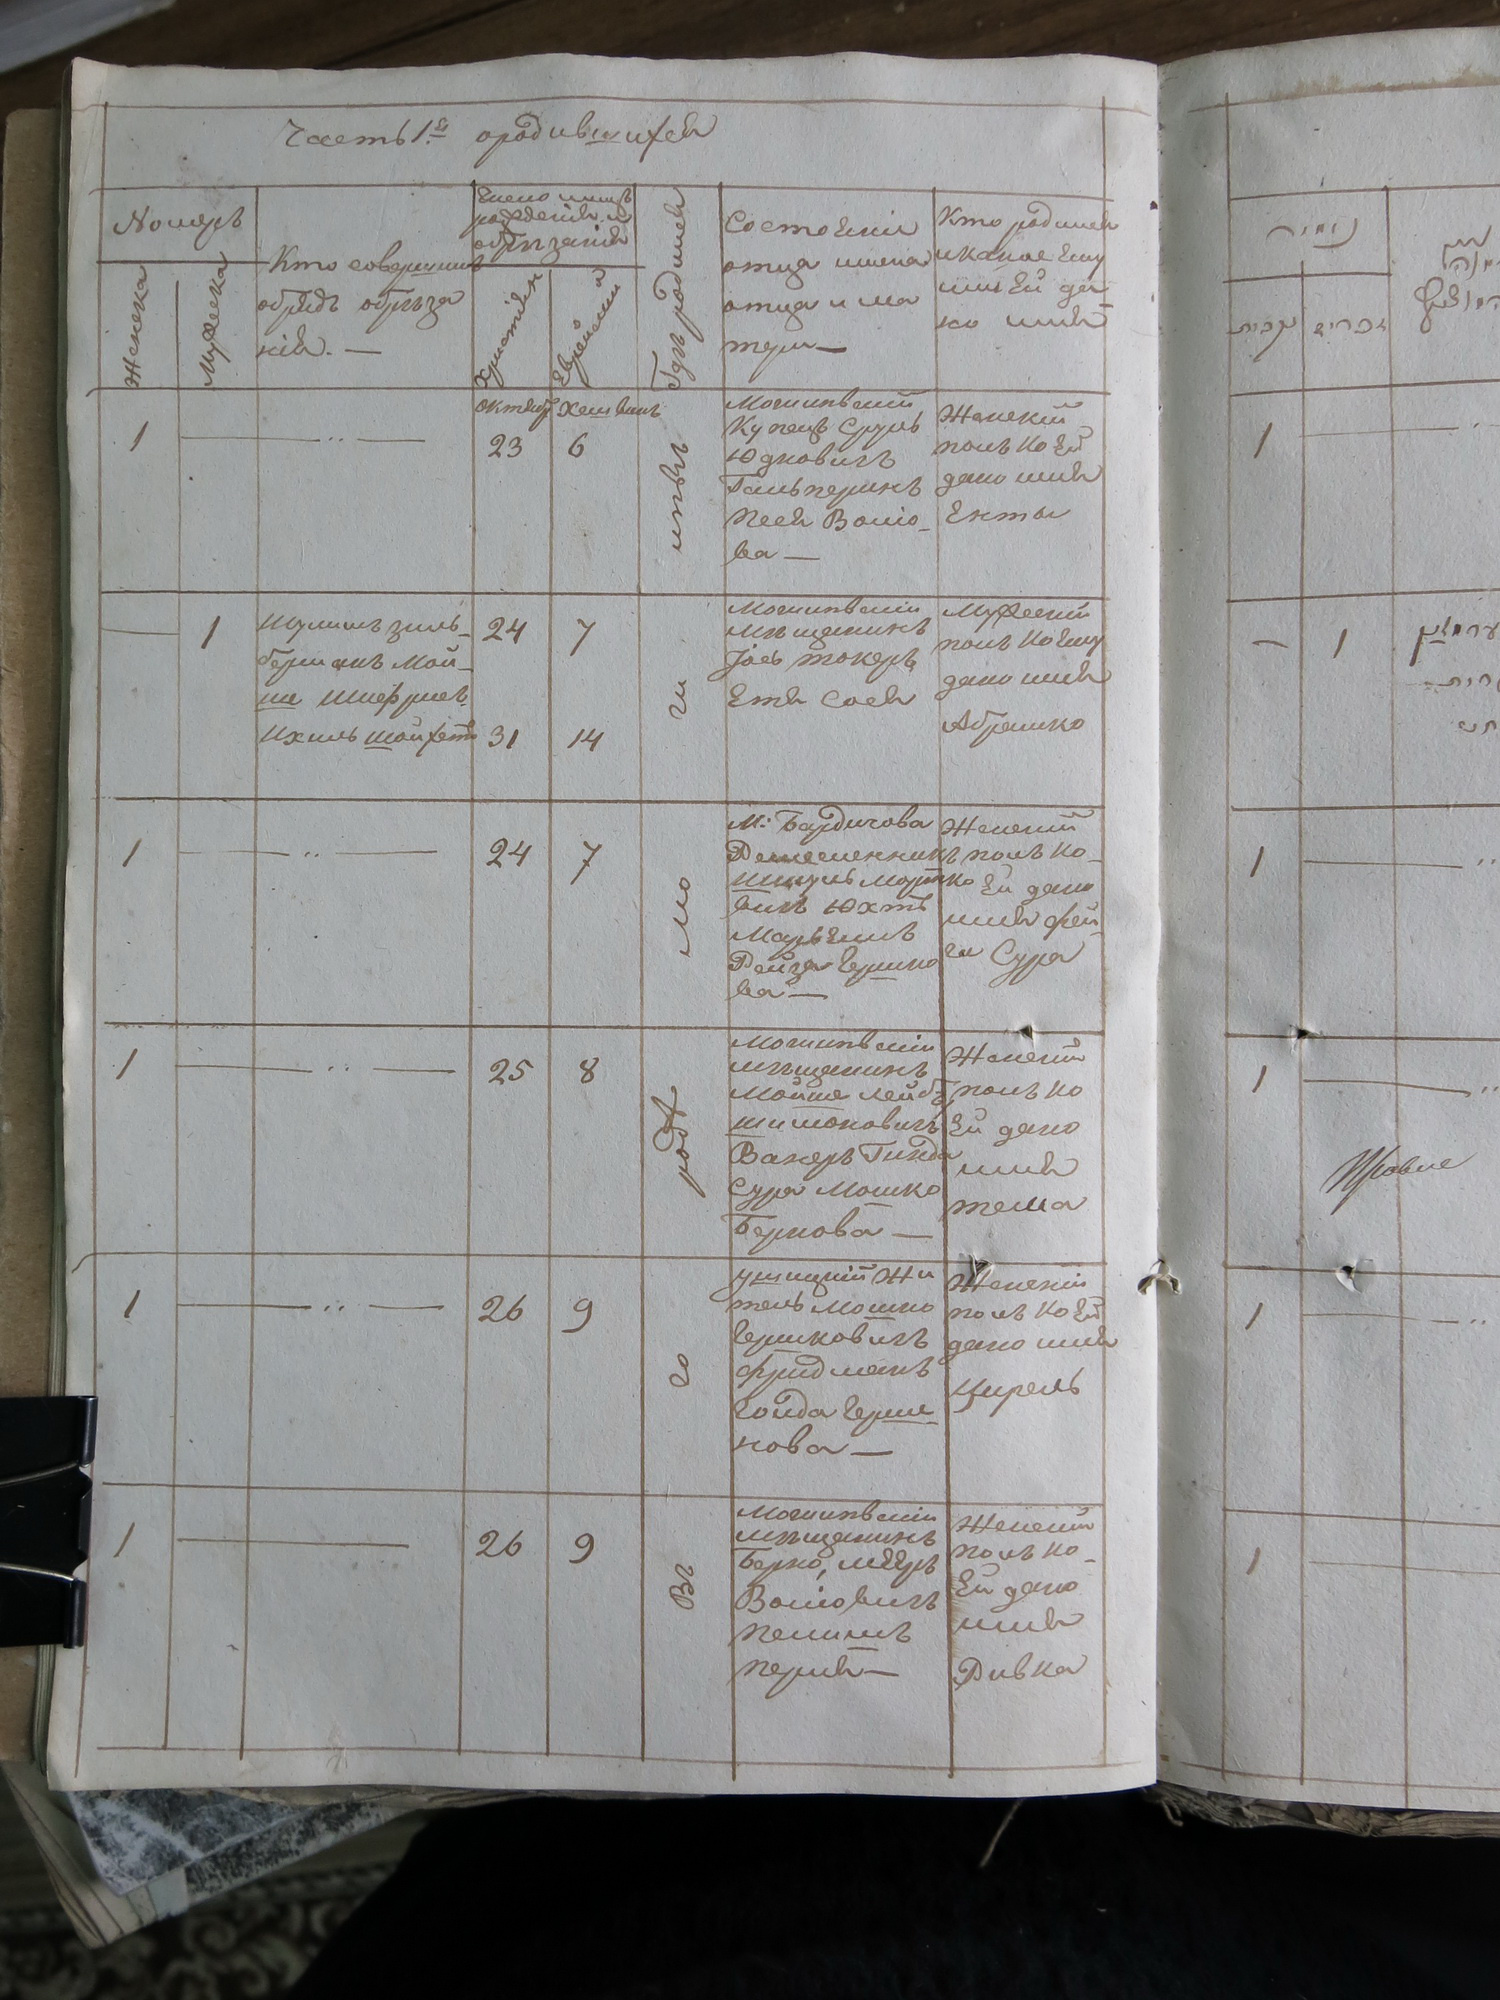 Часть 1.я о родившихся
Номеръ
Женска
Мужеска
Кто совершилъ
обрядъ обрѣза
нія. —
Число и мцъ
рожденія и
обрѣзанія
Христіян
Еврейский
Гдѣ родился
Состояніи
отца имена
отца и ма
тери —
Кто родился
и какое Ему
или Ей да
но имя
октябр Хешванъ
1 — " — 23 6
Могилевский
Купецъ Сруль
Юдковичъ
Гальперинъ
Песя Волко-
ва —
Женскій
полъ Ко Ей
дано имя
Енты
— 1
Шулимъ зиль-
берманъ Мой-
ше
Ихиль Шойхетъ
24 7
31 14
Могилевскій
Мѣщанинъ
Іось токеръ
Етя Сося
Мужескій
полъ Ко Ему
дано имя
Абрамко
1 — " — 24 7
М: Бардичова
Ремесленникъ
Шмуль Мортко
вичъ Юхтъ
Марьемъ
Рейза Гершко
ва —
Женскій
полъ Ко-
Ей дано
имя фей-
га Сура
1 — " — 25 8
Могилевскій
мѣщанинъ
Мойше Лейбъ
Шимоновичъ
Ванеръ Гинда
Сура Мошко
Беркова —
Женскій
полъ Ко
Ей дано
имя
тема
1 — " — 26 9
ушицкій Жи
тель Мошко
Гершковичъ
фридманъ
Гольда Герш-
кова —
Женскій
полъ Ко Ей
дано имя
Цирель
1 — 26 9
Могилевскій
мѣщанинъ
Берко, Мееръ
Волковичъ
перля —
Женскій
полъ Ко-
Ей дано
имя
Ривка
Въ
го
родѣ
мо
ги
левѣ
נומיר
נקבות
זכרים
1
— 1
1
1
1
1